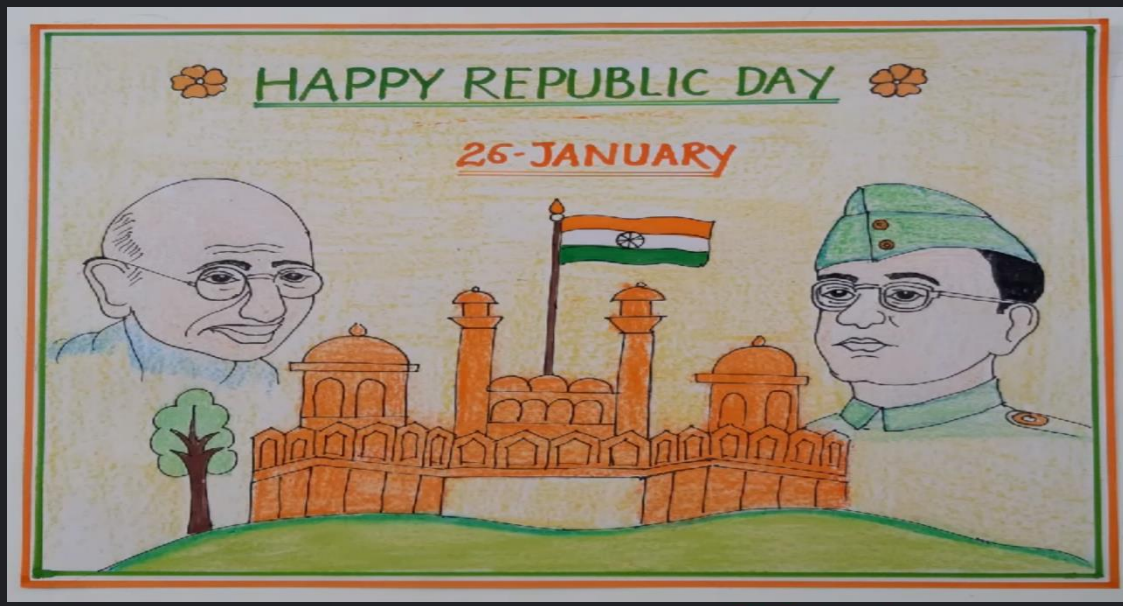 HAPPY REPUBLIC DAY
26-JANUARY